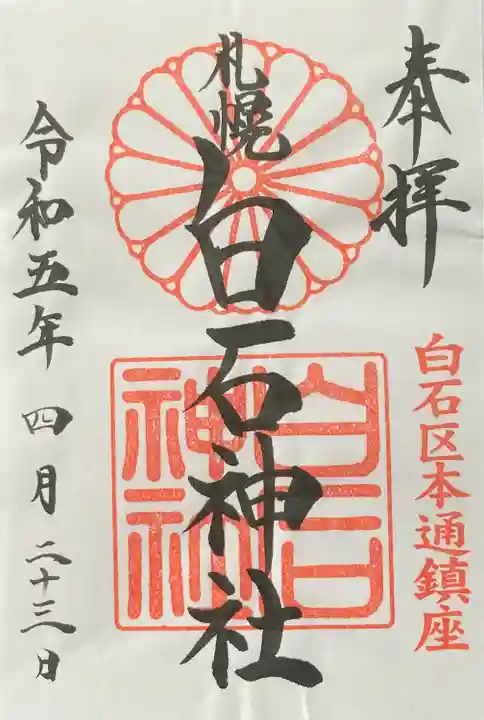 奉拝
白石区本通鎮座
札幌
白石神社
白石神社
令和五年 四月 二十三日